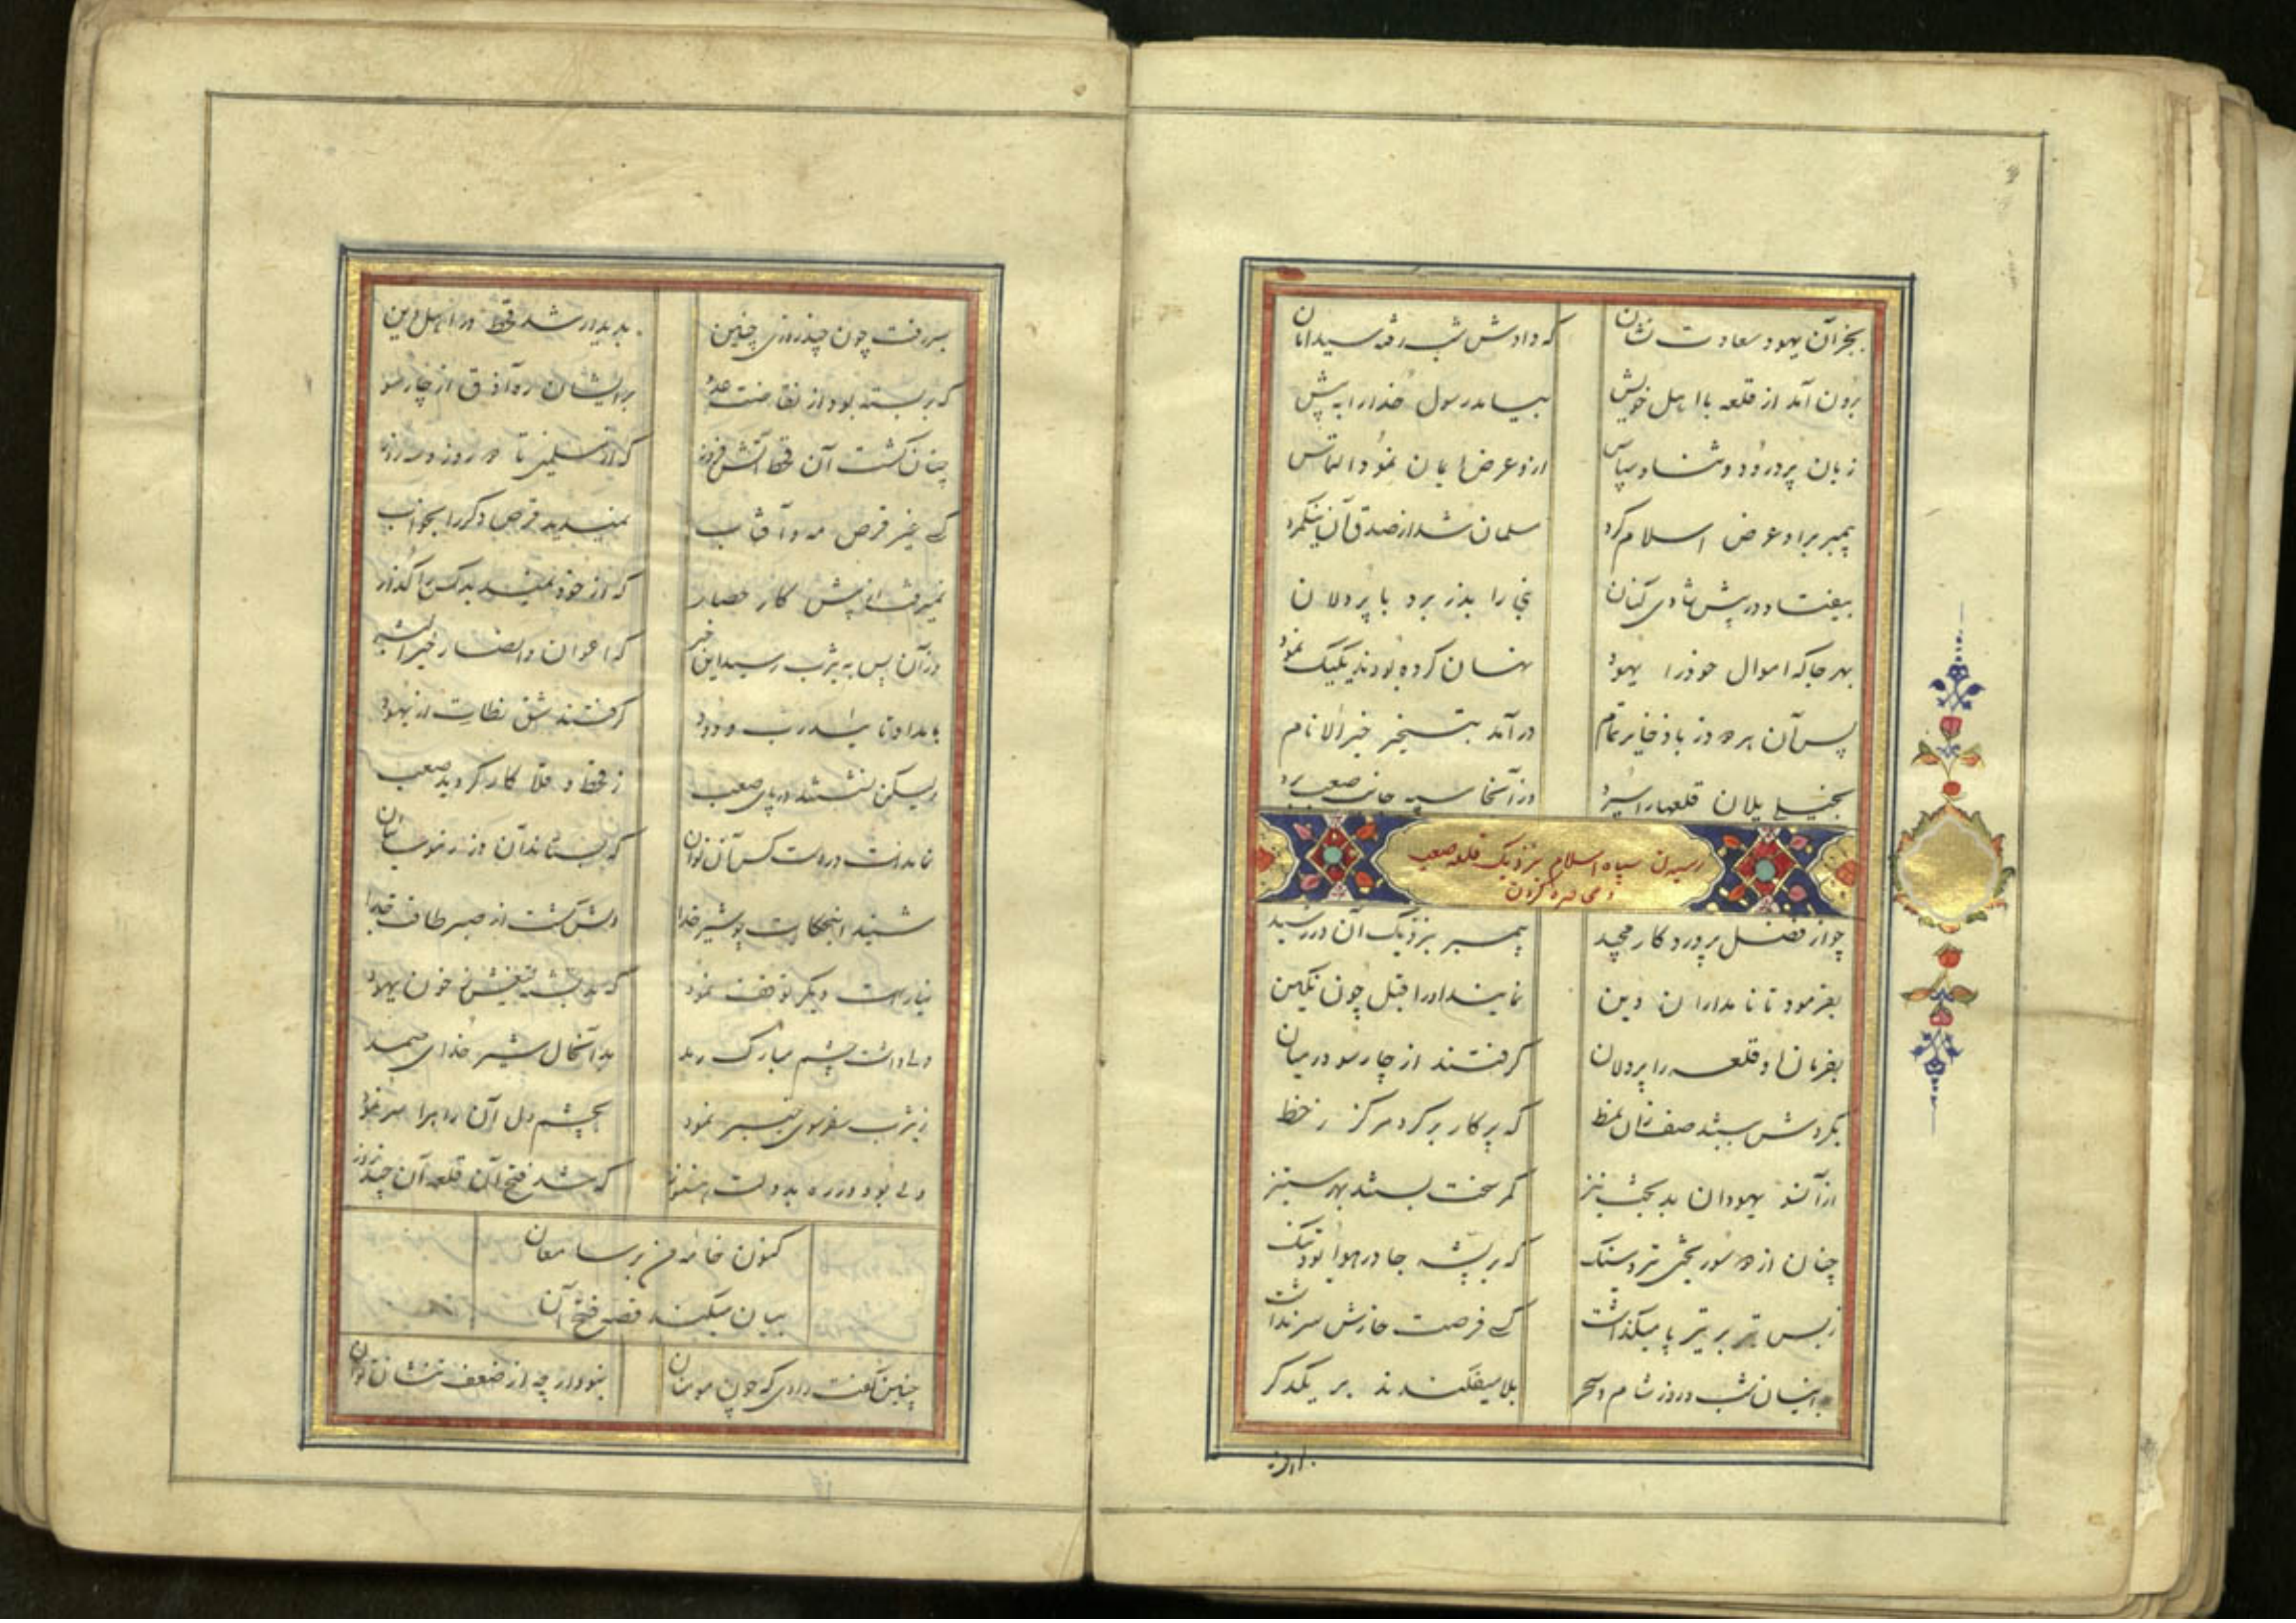 بجز آن یهود سعادت نشان که دادش شب رفته سید امان
برون آمد از قلعه با اهل خویش بیامد رسول خدا را به پیش
زبان پر درود و ثنا و سپاس ازو عرض ایمان نمود التماس
پیمبر برو عرض اسلام کرد مسلمان شد از صدق آن نیکمرد
بیفتاد در پیش شادی کنان نبی را بدز برد با پردلان
بهر جا که اموال خود را یهود نهان کرده بودند یکیک نمود
پس آن هر دو دز با ذخایر تمام درآمد بتسخیر خیر الانام
بخیل یلان قلعها را سپرد وز آنجا سپه جانب صعب برد
رسیدن سپاه اسلام بنزدیک قلعه صعب
و محاصره کردن
چو از فضل پروردگار مجید پیمبر بنزدیک آن در رسید
بفرمود تا نامداران دین نمایند او را قبل چون نگین
بفرمان او قلعه را پردلان گرفتند از چارسو در میان
بگردش ببستند صف زان نمط که پرگار بر گرد مرکز ز خط
از آنسو یهودان بدبخت نیز کمر سخت بستند بهر ستیز
چنان از دو سو ریختی تیر و سنگ که بر پشه جا در هوا بود تنگ
ز بس تیر بر تیر پا میگذاشت کسی فرصت خارش سر نداشت
بدینسان شب و روز شام و سحر بلا میفکندند بر یکدگر
بسر رفت چون چند روزی چنین پدیدار شد قحط در اهل دین
که بربسته بود از نفاقت عدو بر ایشان ره آذوق از چارسو
چنان گشت آن قحط آتش فروز که از مسلمین تا دو روز و سه روز
کسی غیر قرص مه و آفتاب نمیدید قرص دگر را بخواب
نمیرفت از پیش کار حصار
وز آن پس به یثرب رسید این خبر که اعوان و انصار خیر البشر
بامداد تا
گرفتند شق نطات از یهود
ولیکن نشستند در پای صعب ز قحط و غلا کار گردید صعب
نمانده است در دست کس آن توان که بستانند آن دز
شنید این حکایت چو شیر خدا دلش گشت از صبر طاقت جدا
نیارست دیگر توقف نمود
ولی داشت چشم مبارک رمد بد آنحال شیر خدای صمد
ز یثرب سفر سوی خیبر نمود بچشم دل آن راه را سر نمود
ولی بود در ره بدولت هنوز که شد فتح آن قلعه آن چند روز
کنون خامه من بر سامعان
بیان میکند قصه فتح آن
چنین گفت راوی که چون مومنان نبود ار چه از ضعف تنشان توان